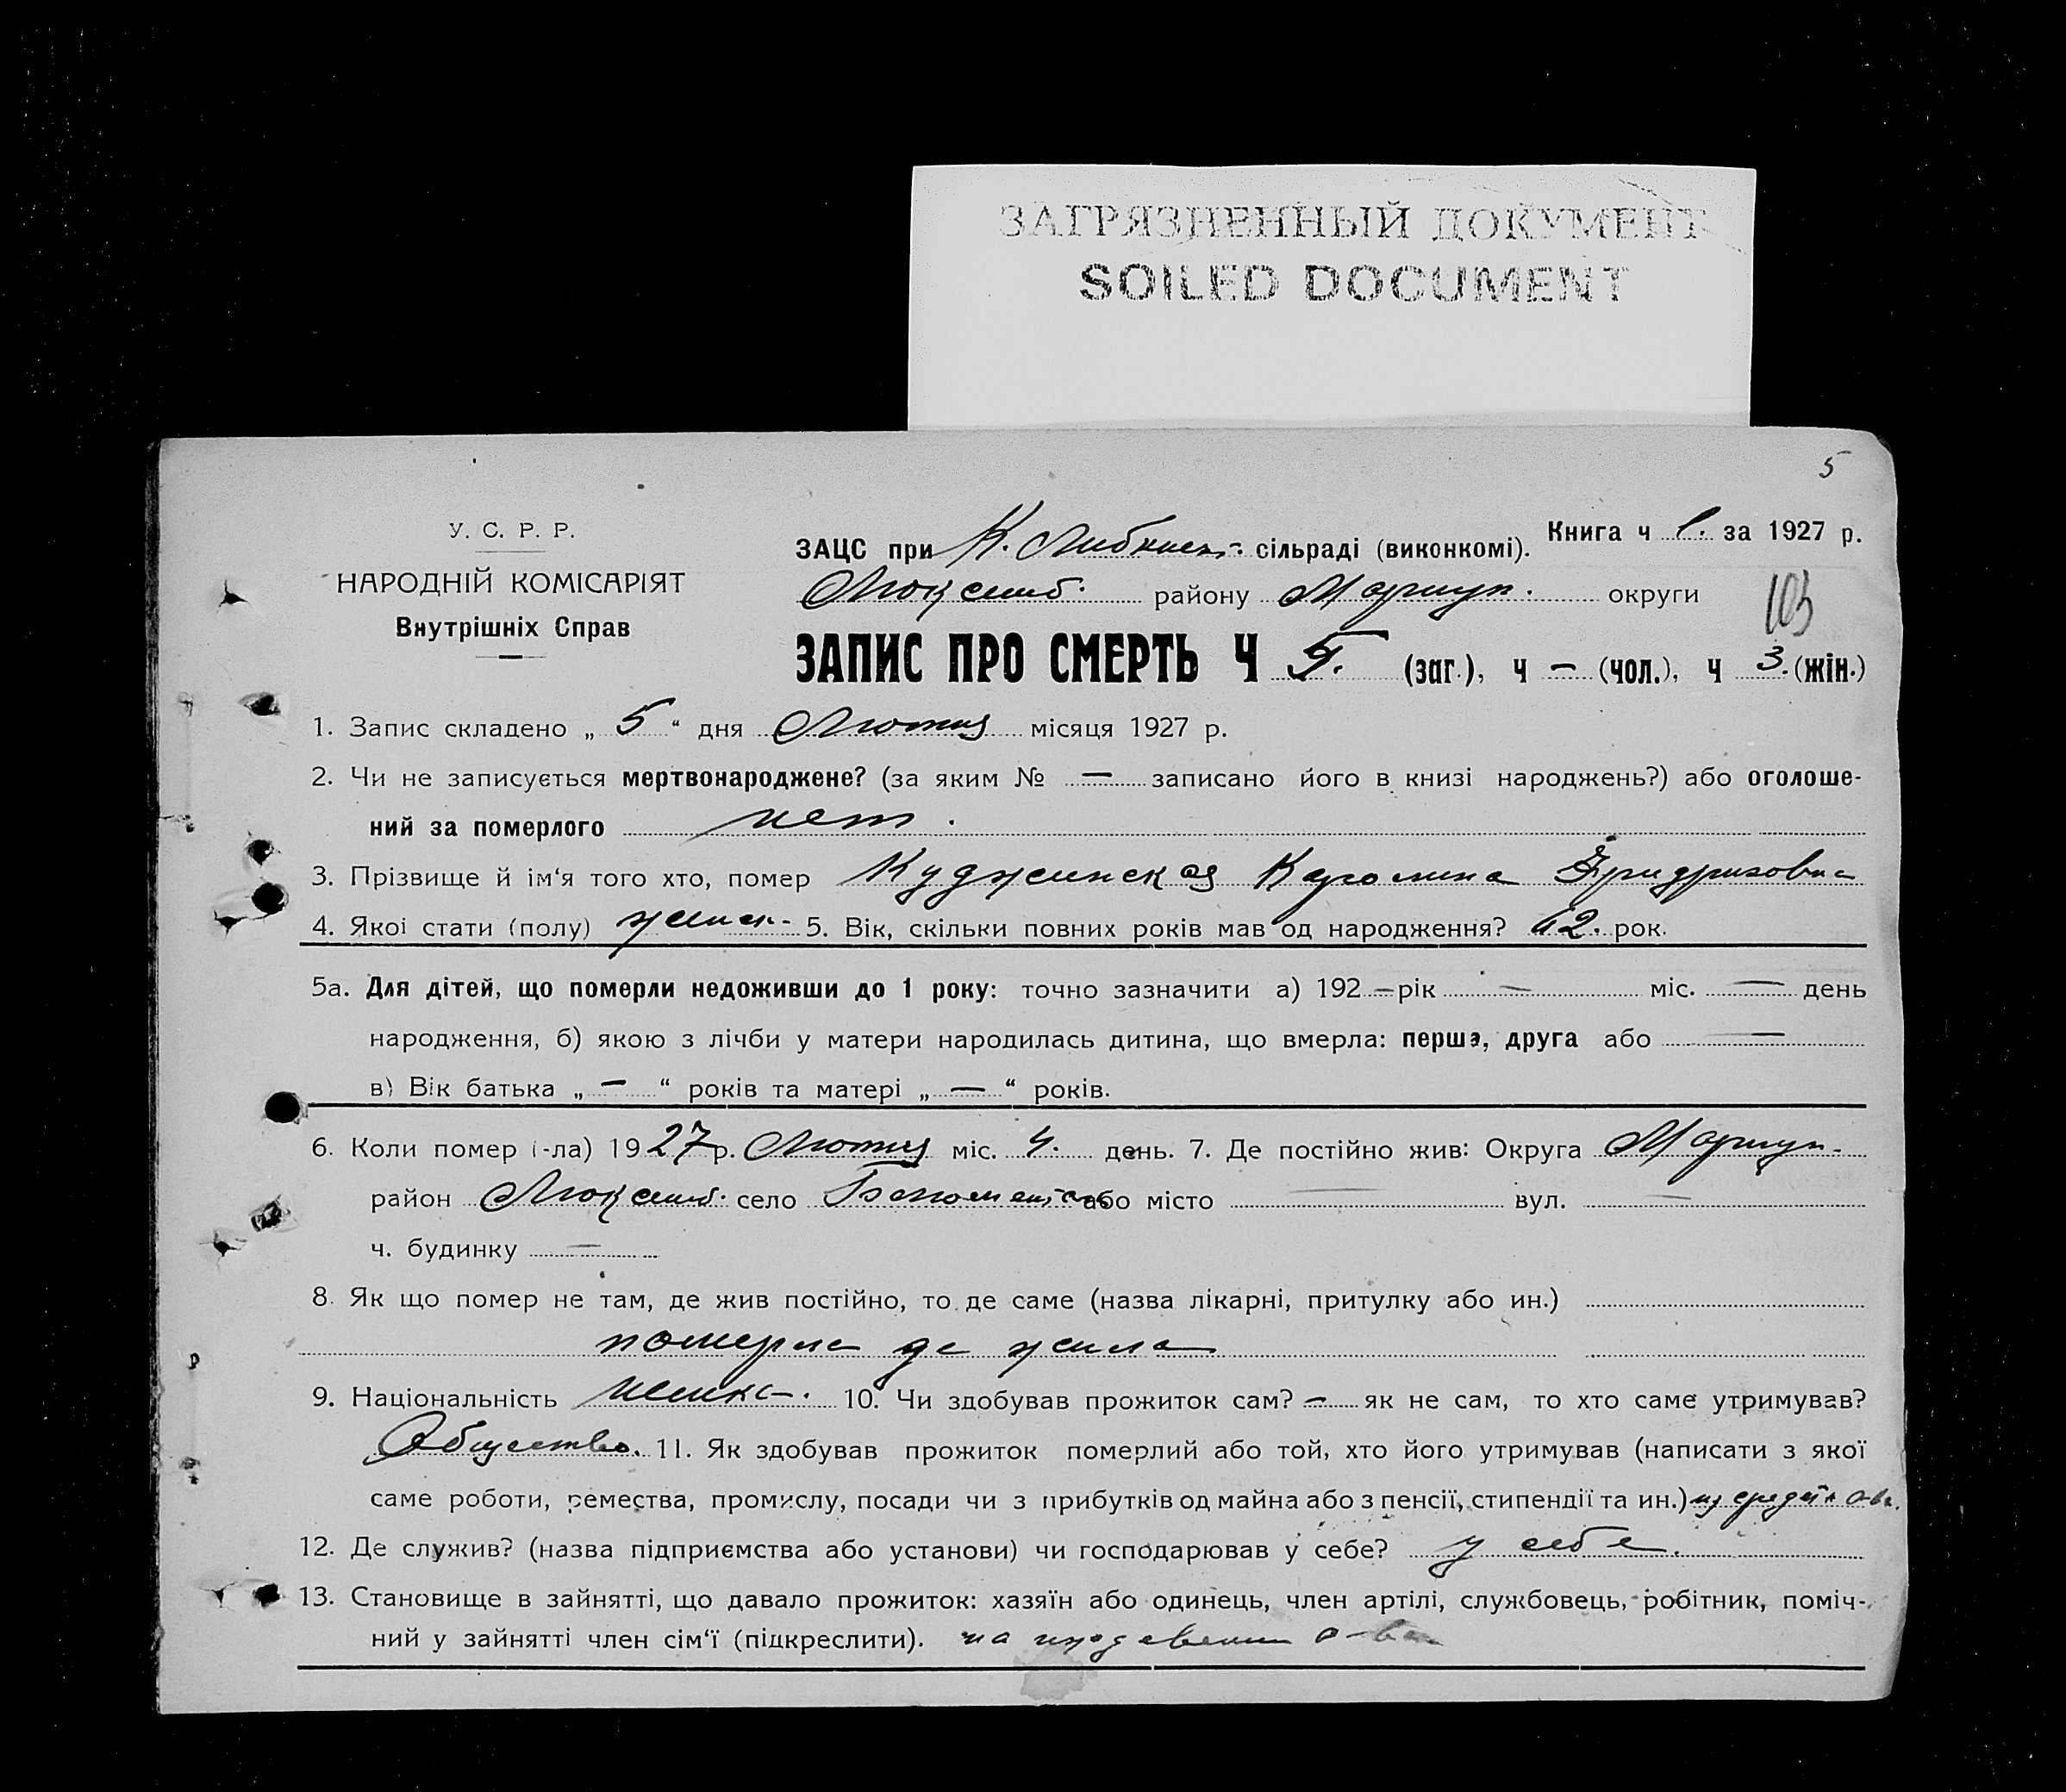 ЗАГРЯЗНЕННЫЙ ДОКУМЕНТ
SOILED DOCUMENT
5
У. С. Р. Р.
НАРОДНІЙ КОМІСАРІЯТ
Внутрішніх Справ
Книга ч 1. за 1927 р.
ЗАЦС при К. Либкнехт. сільраді (виконкомі).
Люксемб. району Маріуп. округи
103
ЗАПИС ПРО СМЕРТЬ Ч 5. (заг.), ч — (чол.), ч 3. (жін.)
1. Запис складено „ 5 “ дня Лютня місяця 1927 р.
2. Чи не записується мертвонароджене? (за яким № — записано його в книзі народжень?) або оголоше-
ний за померлого нет.
3. Прізвище й ім‘я того хто, помер Каролина Фридриховна
4. Якої стати (полу) женск. 5. Вік, скільки повних років мав од народження? рок.
5а. Для дітей, що померли недоживши до 1 року: точно зазначити а) 192 — рік — міс. — день
народження, б) якою з лічби у матери народилась дитина, що вмерла: перша, друга або —
в) Вік батька „ — “ років та матері „ — “ років.
6. Коли помер (-ла) 1927 р. Лютня міс. 4. день. 7. Де постійно жив: Округа Маріуп.
район Люксемб. село або місто — вул. —
ч. будинку —
8. Як що помер не там, де жив постійно, то де саме (назва лікарні, притулку або ин.)
померла де жила
9. Національність немка. 10. Чи здобував прожиток сам? — як не сам, то хто саме утримував?
Общество. 11. Як здобував прожиток померлий або той, хто його утримував (написати з якої
саме роботи, ремества, промислу, посади чи з прибутків од майна або з пенсії, стипендії та ин.) из средств о-ва.
12. Де служив? (назва підприємства або установи) чи господарював у себе? у себе.
13. Становище в зайнятті, що давало прожиток: хазяїн або одинець, член артілі, службовець, робітник, поміч-
ний у зайнятті член сім‘ї (підкреслити). на о-ва